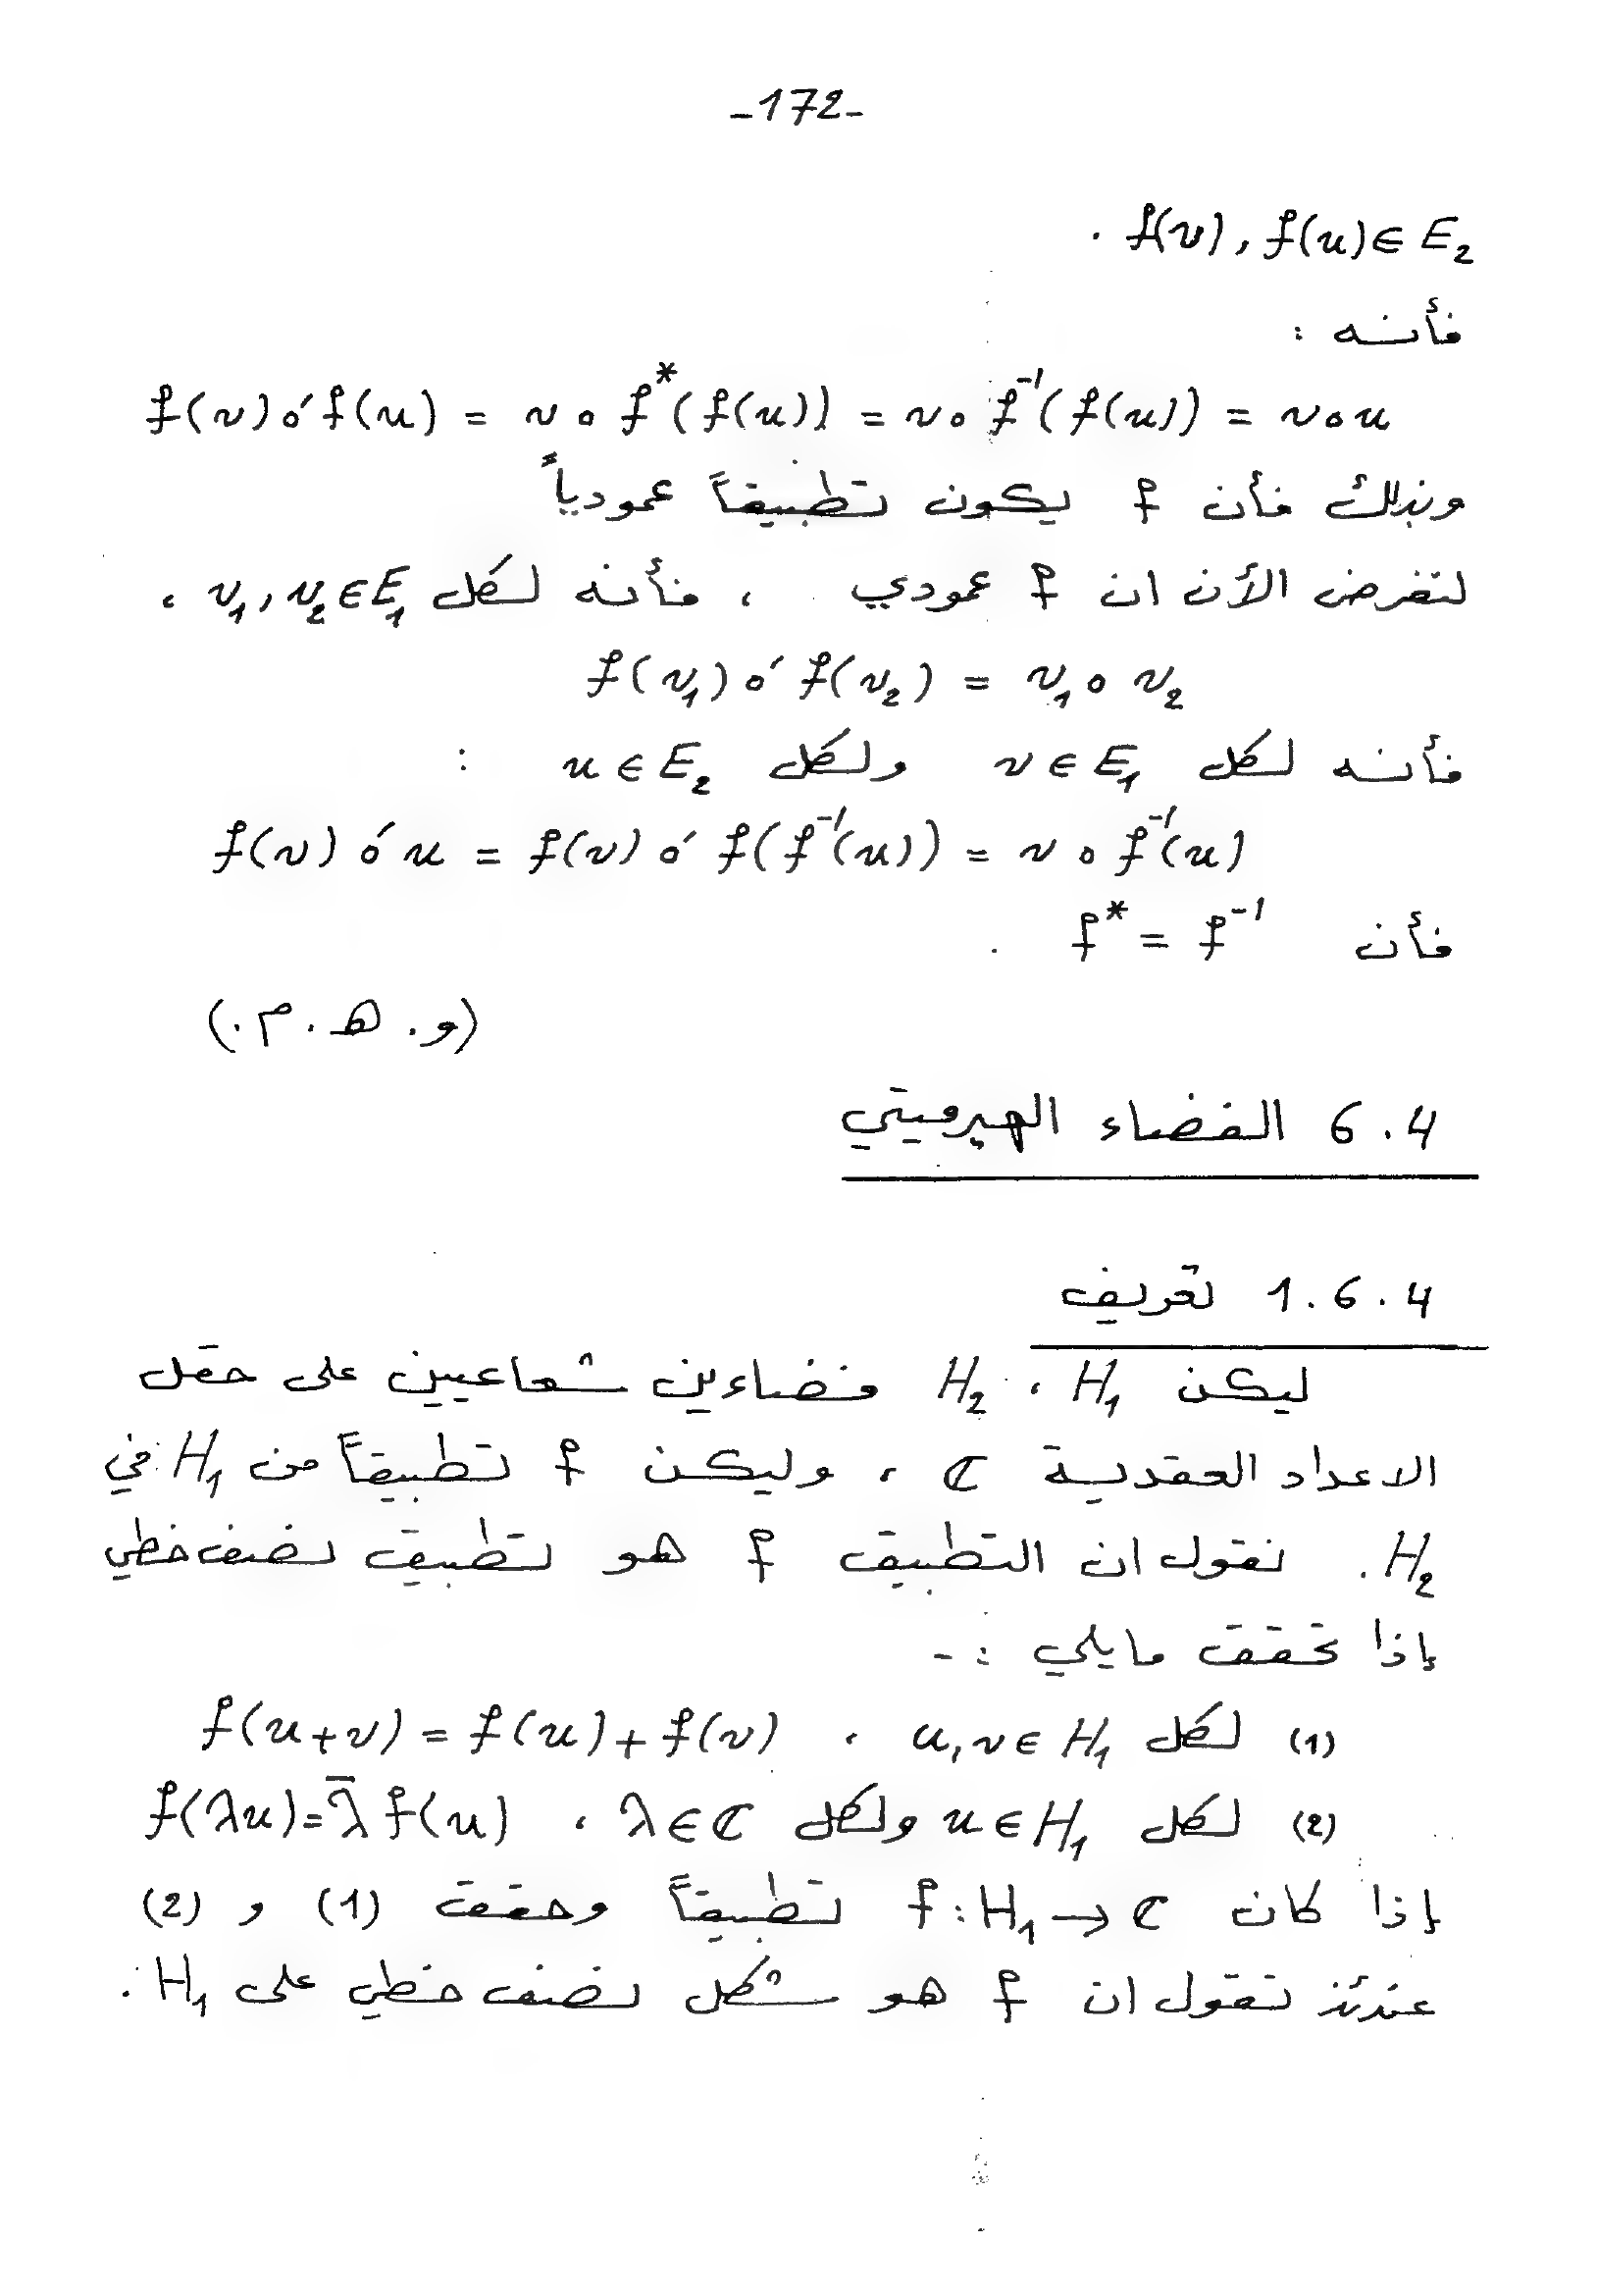 -172-
f(v), f(u) ∈ E₂ .
فأنه :
f(v) o′ f(u) = v o f*(f(u)) = v o f⁻¹(f(u)) = v o u
وبذلك فأن f يكون تطبيقاً عمودياً
لنفرض الأن ان f عمودي ، فأنه لكل v₁, v₂ ∈ E₁ ،
f(v₁) o′ f(v₂) = v₁ o v₂
فأنه لكل v ∈ E₁ ولكل u ∈ E₂ :
f(v) o′ u = f(v) o′ f(f⁻¹(u)) = v o f⁻¹(u)
فأن f* = f⁻¹ .
(و. هـ. م.)
6.4 الفضاء الهيرميتي
1.6.4 تعريف
ليكن H₁ ، H₂ فضاءين شعاعيين على حقل
الاعداد العقدية ℂ ، وليكن f تطبيقاً من H₁ في
H₂. نقول ان التطبيق f هو تطبيق نصف خطي
إذا تحقق مايلي :-
(1) لكل u, v ∈ H₁ ، f(u+v) = f(u) + f(v)
(2) لكل u ∈ H₁ ولكل λ ∈ ℂ ، f(λu) = λ̄ f(u)
إذا كان f : H₁ → ℂ تطبيقاً وحقق (1) و (2)
عندئذ نقول ان f هو شكل نصف خطي على H₁ .